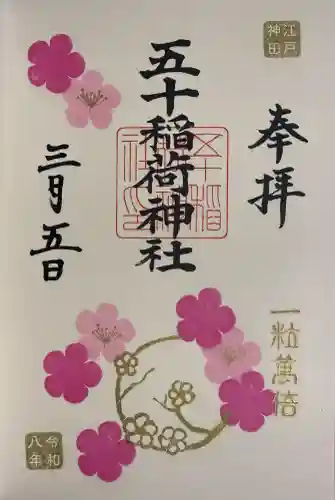 江戸
神田
奉拝
一粒萬倍
五十稲荷神社
三月五日
令和
八年